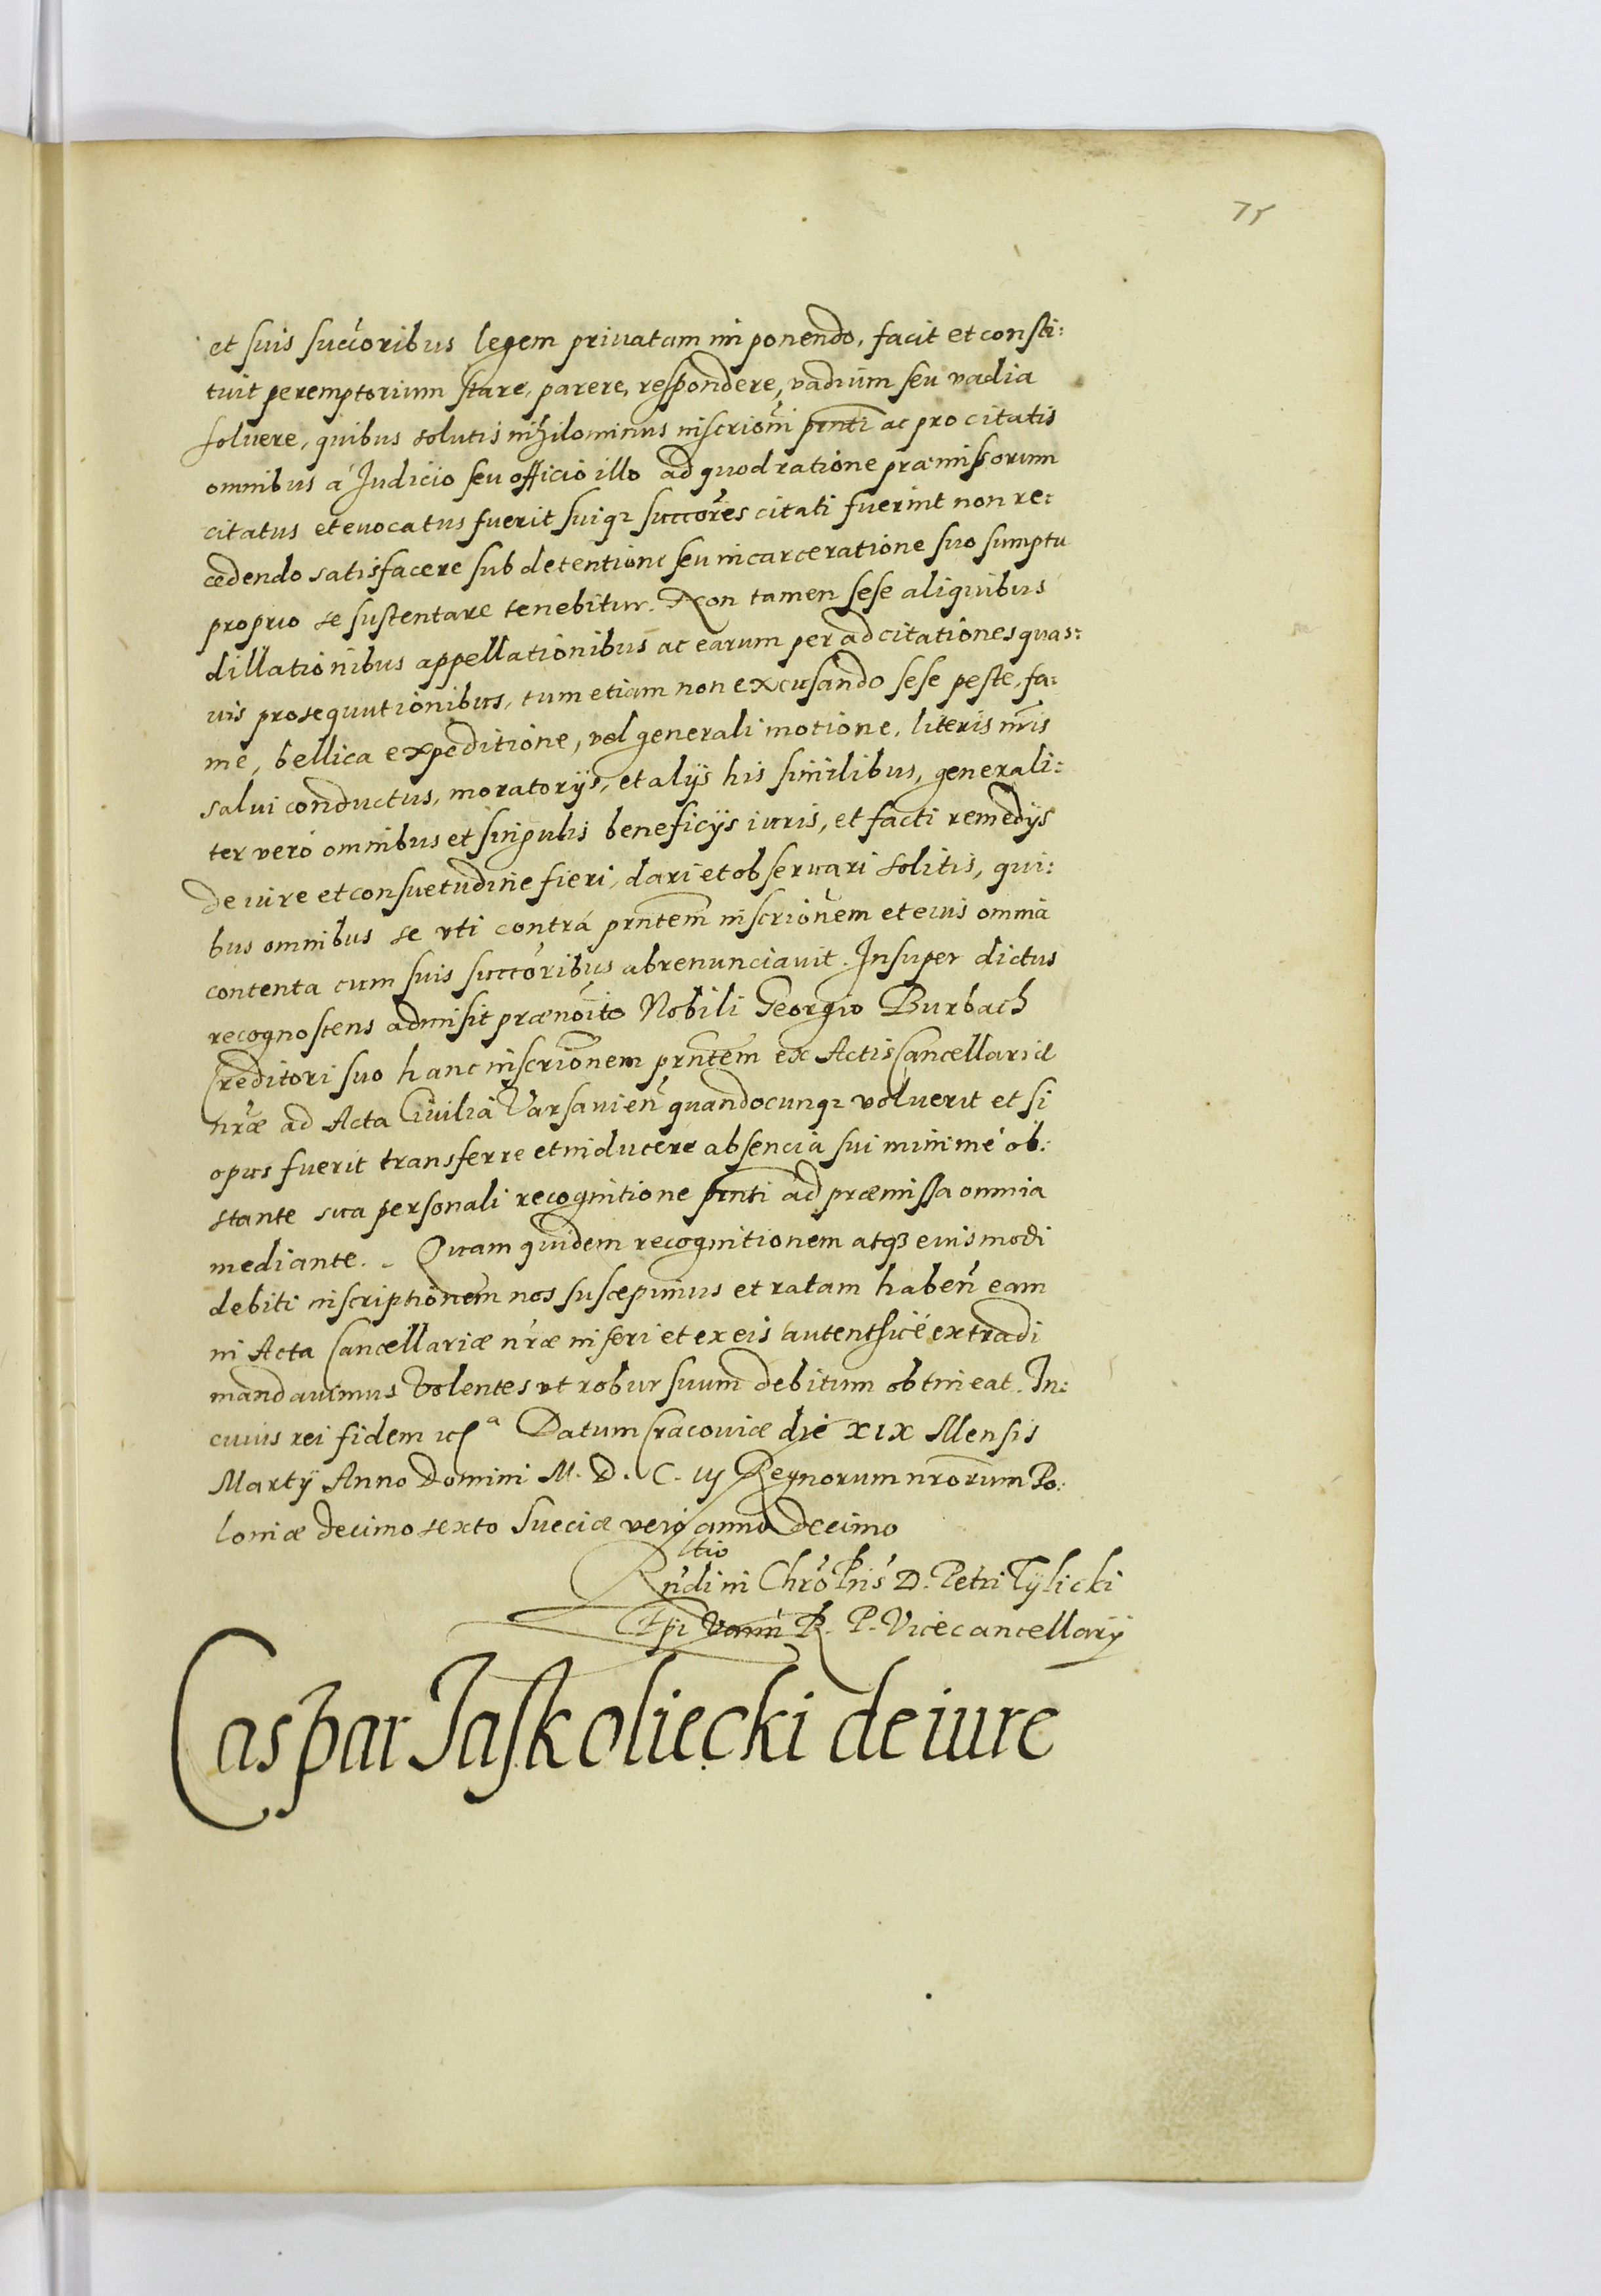 75
et suis succoribus legem priuatam imponendo, facit et consti:
tuit peremptorium stare, parere, respondere, vadium seu vadia
soluere, quibus solutis nihilominus inscrioni pnti ac pro citatis
omnibus á Judicio seu officio illo ad quod ratione præmissorum
citatus et euocatus fuerit suiq succores citati fuerint non re:
cedendo satisfacere sub detentione seu incarceratione suo sumptu
proprio se sustentare tenebitur. Non tamen sese aliquibus
dillationibus appellationibus ac earum per adcitationes quas:
uis prosequutionibus, tum etiam non excusando sese peste, fa:
me, bellica expeditione, vel generali motione, literis nris
salui conductus, moratorijs, et alijs his similibus, generali:
ter veró omnibus et singulis beneficijs iuris, et facti remedijs
de iure et consuetudine fieri, dari et obseruari solitis, qui:
bus omnibus se vti contrá prntem inscrionem et eius omnia
contenta cum suis succoribus abrenunciauit. Insuper dictus
recognoscens admisit prænoito Nobili Georgio Burbach
Creditori suo hanc inscrionem prntem ex Actis Cancellariæ
nræ ad Acta Ciuilia Varsauien quandocunq voluerit et si
opus fuerit transferre et inducere absencia sui minimé ob:
stante sua personali recognitione pnti ad præmissa omnia
mediante. Quam quidem recognitionem atq3 eiusmodi
debiti inscriptionem nos suscepimus et ratam haben eam
in Acta Cancellariæ nræ inseri et ex eis autenthicé extradi
mandauimus Volentes vt robur suum debitum obtineat. In:
cuius rei fidem ic a Datum Cracouiæ die XIX Mensis
Martij Anno Domini M. D. C. iij Regnorum nrorum Po:
loniæ decimo sexto Sueciæ vero anno decimo
ltio
Rndi in Chro Pris D. Petri Tÿlicki
Epi R. P. Vicecancellarij
Caspar Jaskoliecki de iure